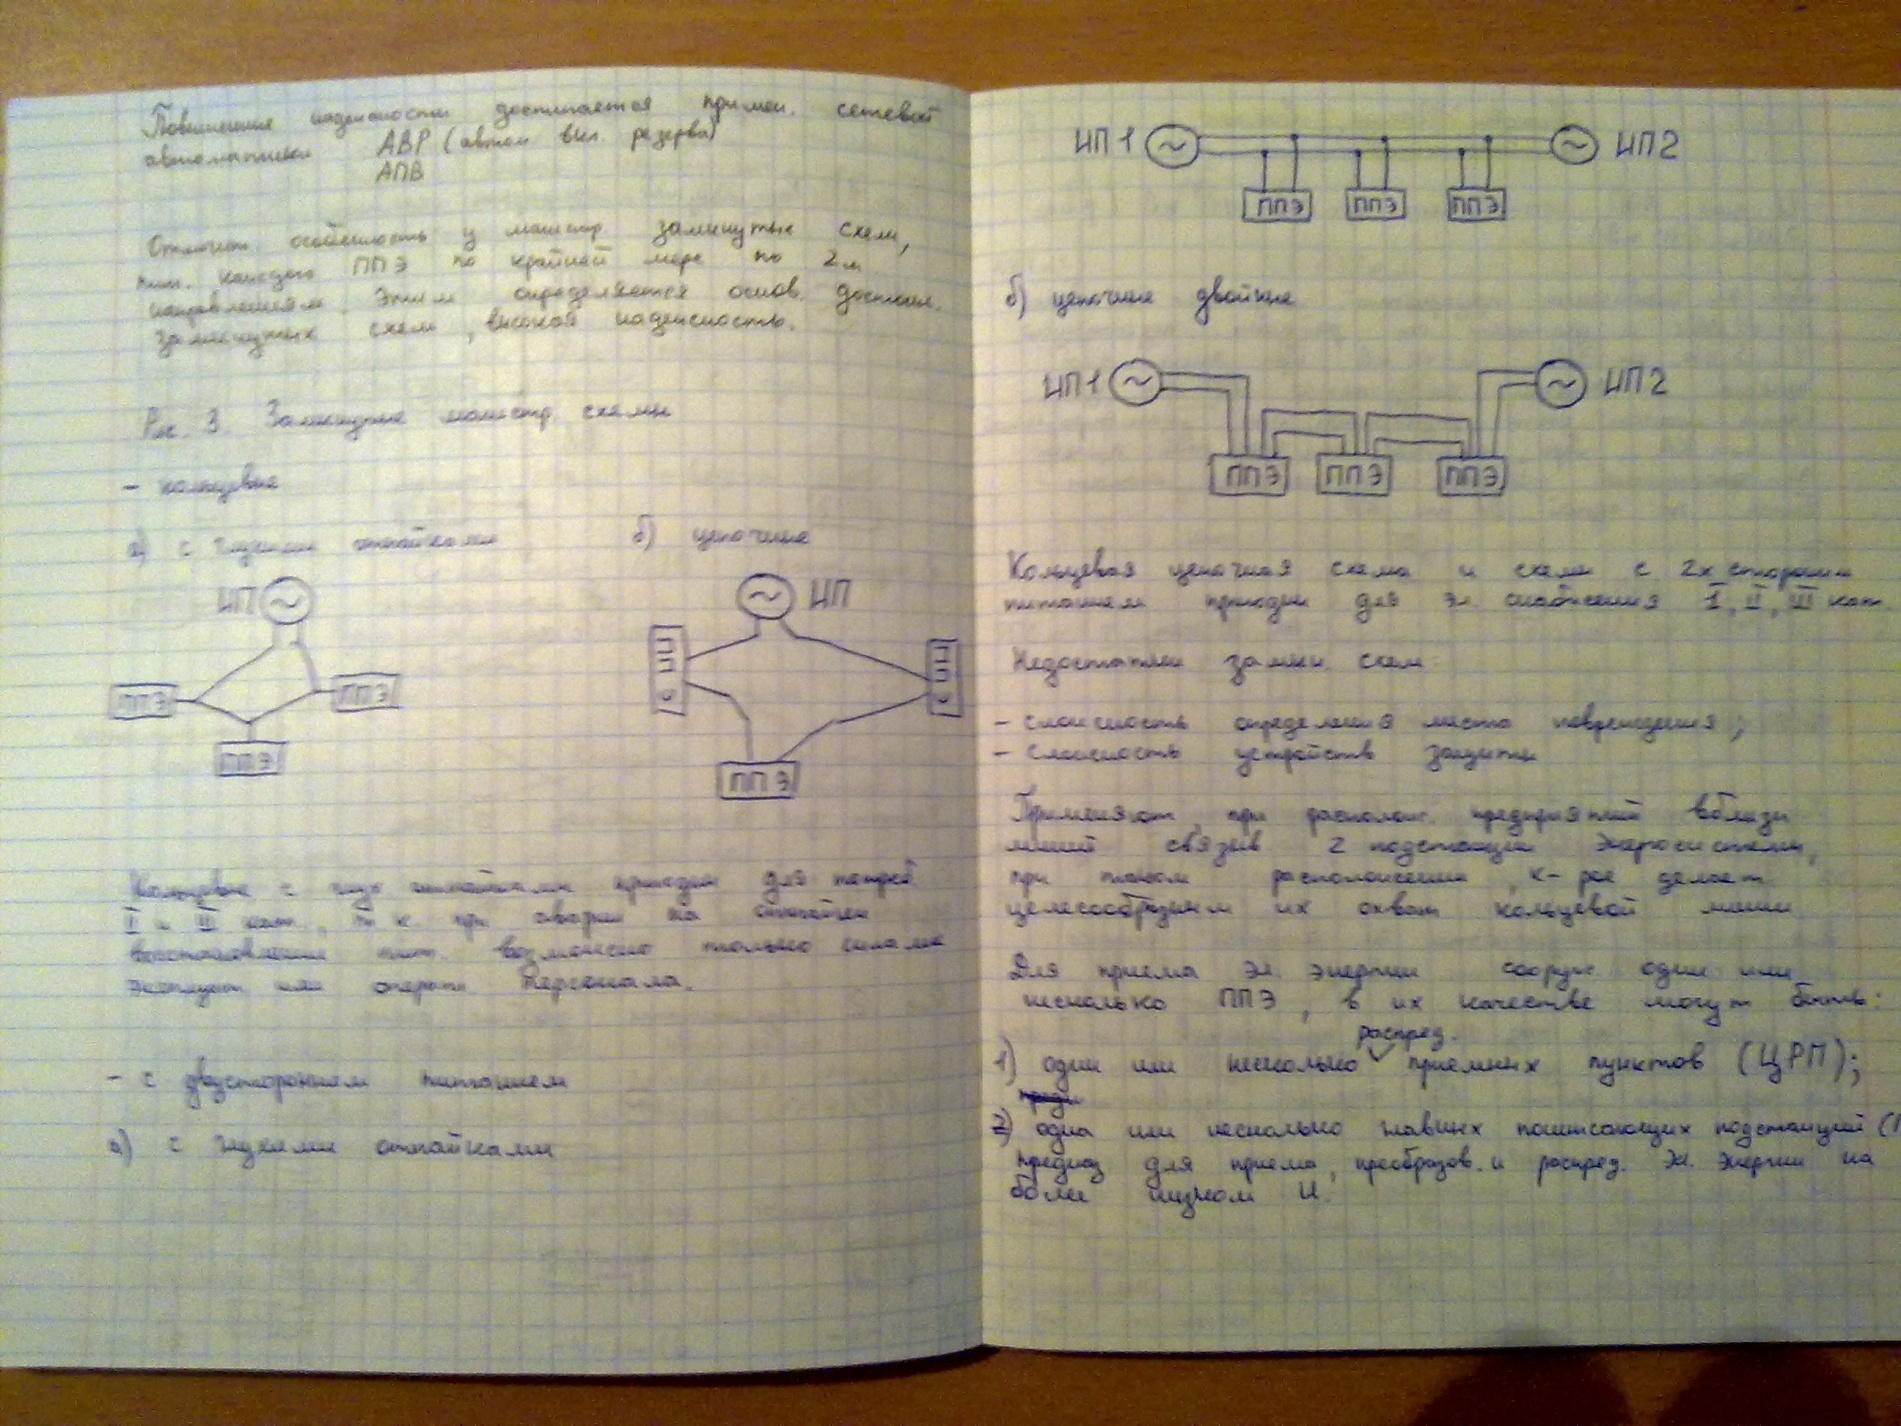 Повышение надежности достигается примен. сетевой
автоматики АВР (автом вкл. резерва)
АПВ
Отличит. особенность у магистр. замкнутых схем,
пит. каждого ППЭ по крайней мере по 2м
направлениям. Этим определяется основ. достоин.
замкнутых схем, высокая надежность.
Рис. 3. Замкнутые магистр. схемы
- кольцевые
а) с глухими отпайками
б) цепочные
ИП
ППЭ
ППЭ
ППЭ
ИП
ППЭ
Кольцевые с глух отпайками пригодны для потреб.
II и III кат., т.к. при аварии на отпайке
восстановление пит. возможно только силами
эксплуат или операт персонала.
- с двусторонним питанием
а) с глухими отпайками
ИП1
ИП2
ППЭ ППЭ ППЭ
б) цепочные двойные
ИП1
ИП2
ППЭ ППЭ ППЭ
Кольцевая цепочная схема и схемы с 2х сторонн
питанием пригодны для эл. снабжения I, II, III кат.
Недостатки замкн. схем:
- сложность определения места повреждения;
- сложность устройств защиты
Применяют, при располож. предприятий вблизи
линий связыв. 2 подстанции энергосистемы,
при таком расположении, к-рое делает
целесообразным их охват кольцевой линии
Для приема эл. энергии сооруж. один или
несколько ППЭ, в их качестве могут быть:
распред.
1) один или несколько приемных пунктов (ЦРП);
2) одна или несколько главных понижающих подстанций (Г
предназ для приема, преобразов. и распред. эл. энергии на
более низком U.